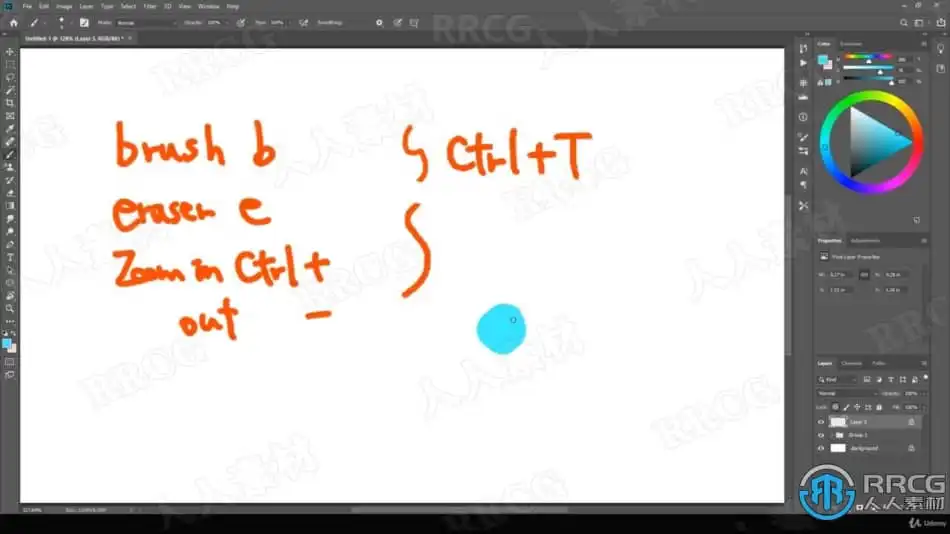 File Edit Image Layer Type Select Filter 3D View Window Help
Mode: Normal Opacity: 100% Flow: 100% Smoothing:
RRCG
brush b
eraser e
Zoom in Ctrl +
out -
Ctrl+T
Color
Properties Adjustments
Pixel Layer Properties
Layers Channels Paths
Kind
Normal Opacity: 100%
Lock: Fill: 100%
Layer 1
Group 1
Background
RRCG
人人素材
Udemy